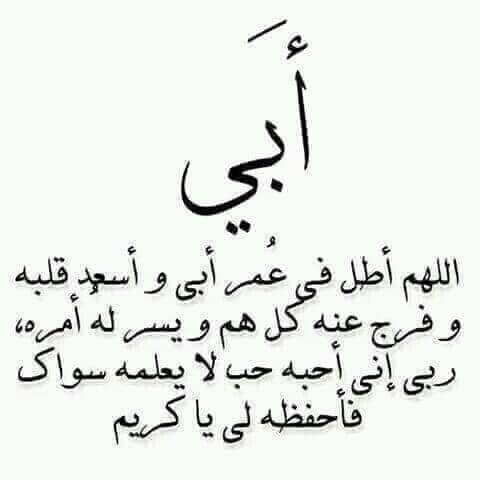 أَبَي
اللهم أطل في عُمر أبي و أسعد قلبه
و فرج عنه كل هم و يسر لهُ أمره،
ربي إني أحبه حب لا يعلمه سواك
فأحفظه لي يا كريم